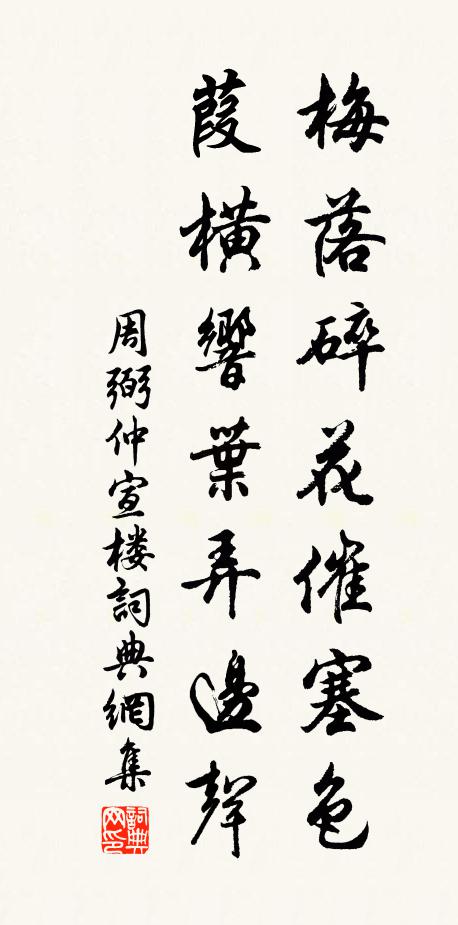 梅落碎花催塞色
葭橫響葉弄邊聲
周弼仲宣楼詞典網集
詞典网印